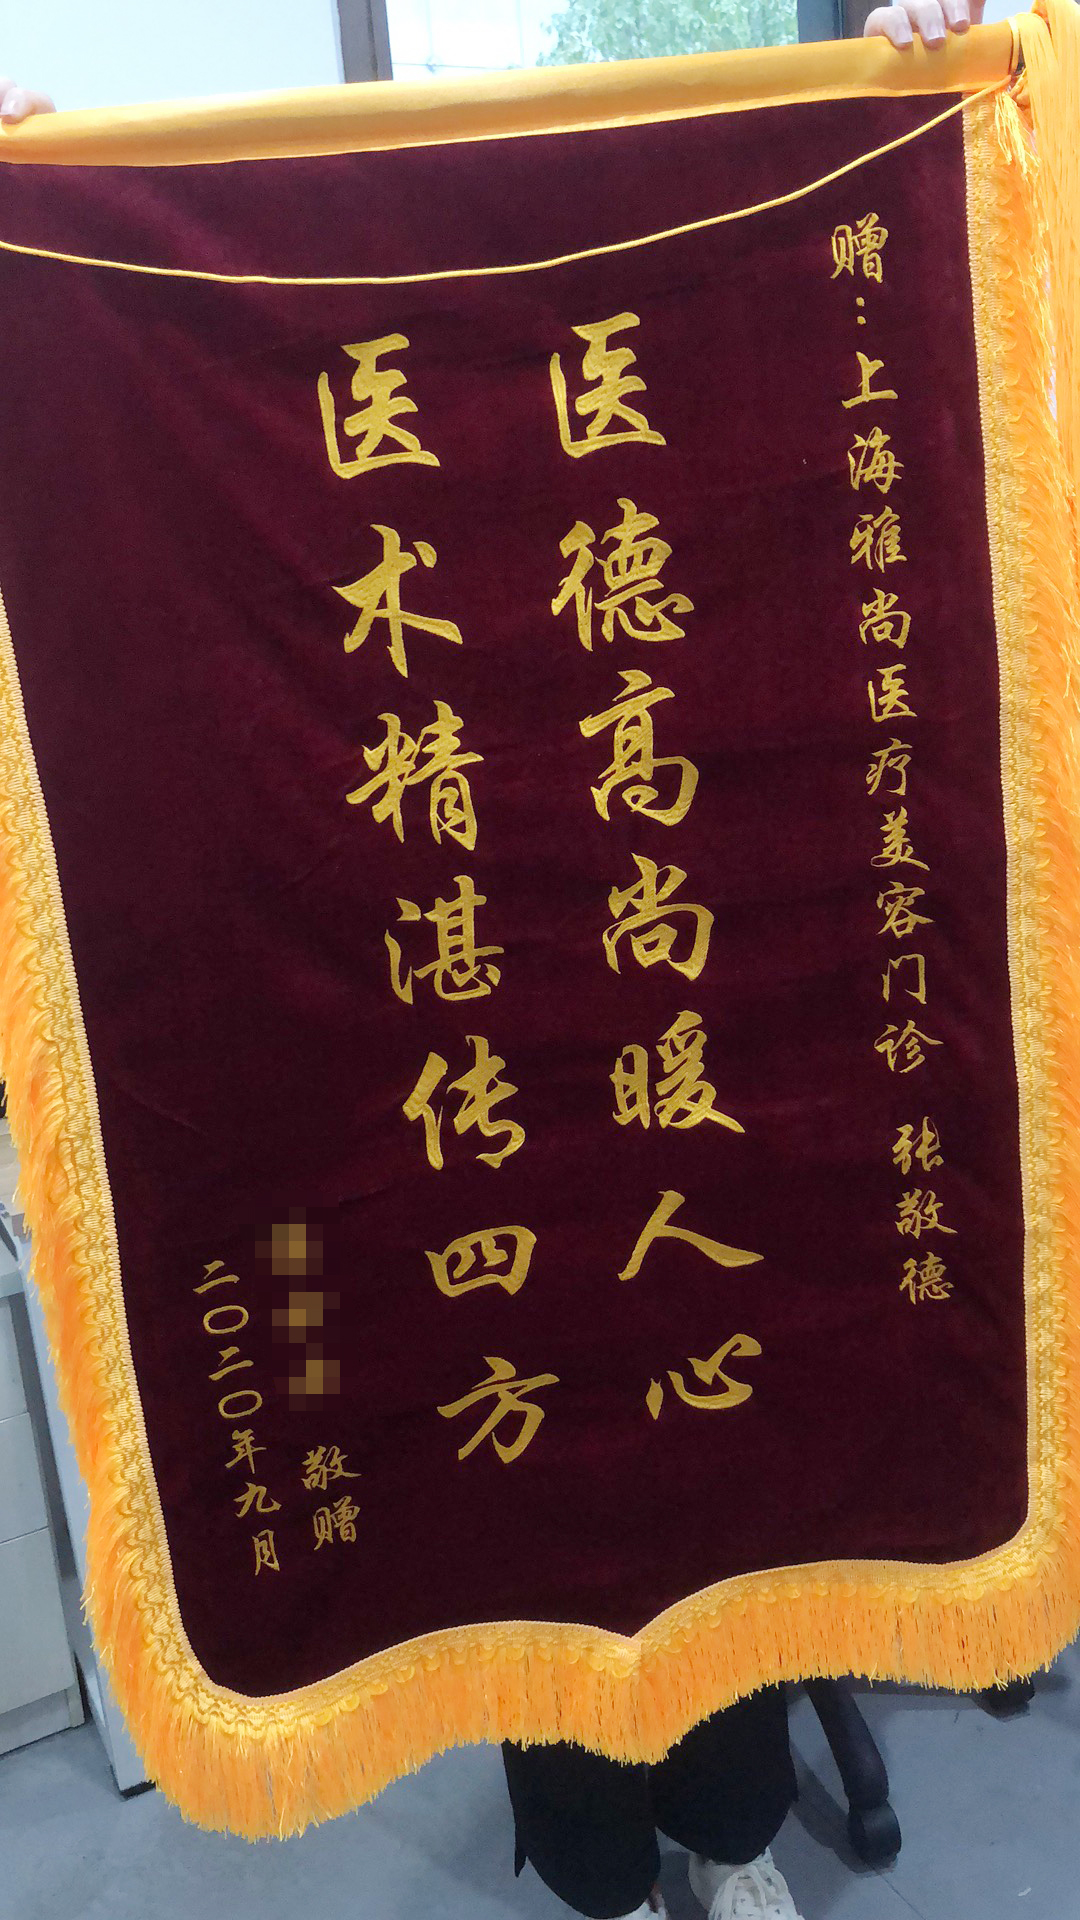 赠：上海雅尚医疗美容门诊 张敬德
医德高尚暖人心
医术精湛传四方
敬赠
二〇二〇年九月